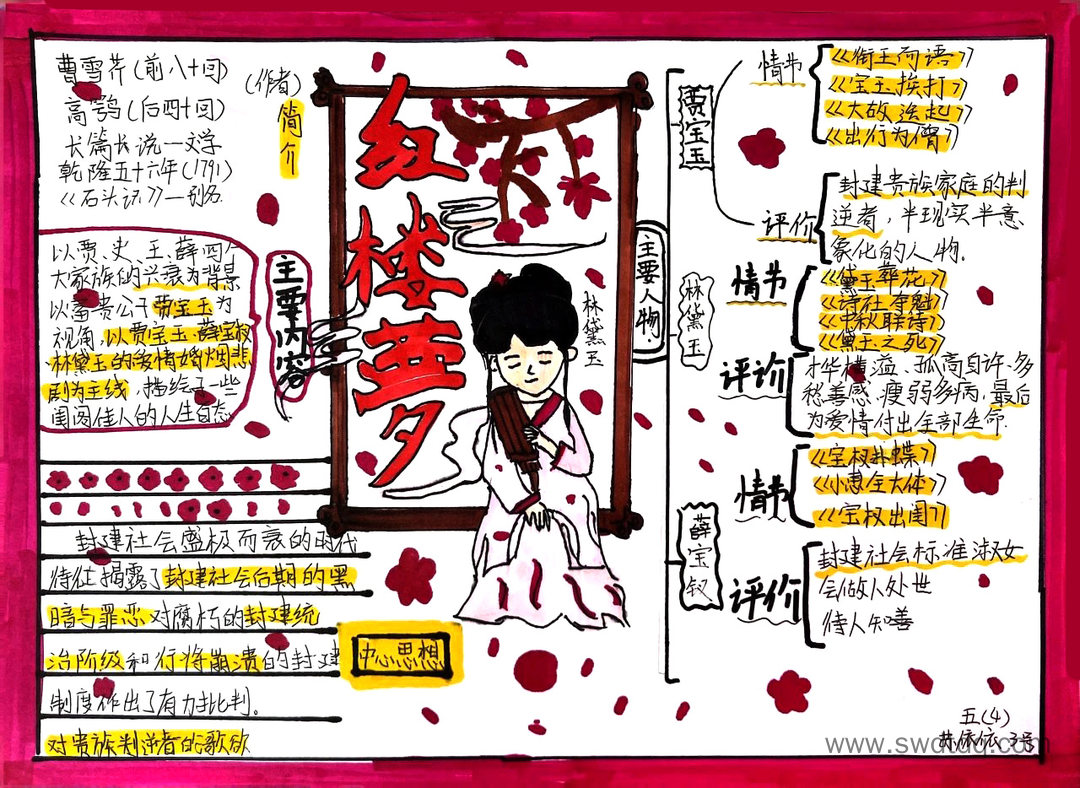 曹雪芹(前八十回)
高鹗(后四十回)
(作者)
简介
长篇长说一文学
乾隆五十六年(1791)
《石头记》—别名
红楼梦
主要内容
以贾、史、王、薛四个
大家族的兴衰为背景
以富贵公子贾宝玉为
视角,以贾宝玉、薛宝钗
林黛玉的爱情婚姻悲
剧为主线,描绘了一些
闺阁佳人的人生百态
封建社会盛极而衰的时代
特征揭露了封建社会后期的黑
暗与罪恶对腐朽的封建统
治阶级和行将崩溃的封建
制度作出了有力批判。
对贵族判逆者的歌颂
中心思想
林黛玉
主要人物
贾宝玉
情节
《衔玉而语》
《宝玉挨打》
《大故迭起》
《出行为僧》
评价
封建贵族家庭的判
逆者,半现实半意
象化的人物.
林黛玉
情节
《黛玉葬花》
《诗社夺魁》
《中秋联诗》
《黛玉之死》
评价
才华横溢、孤高自许、多
愁善感、瘦弱多病,最后
为爱情付出全部生命.
薛宝钗
情节
《宝钗扑蝶》
《小惠全大体》
《宝钗出闺》
评价
封建社会标准淑女
会做人处世
待人和善
五(4)
依依 3号